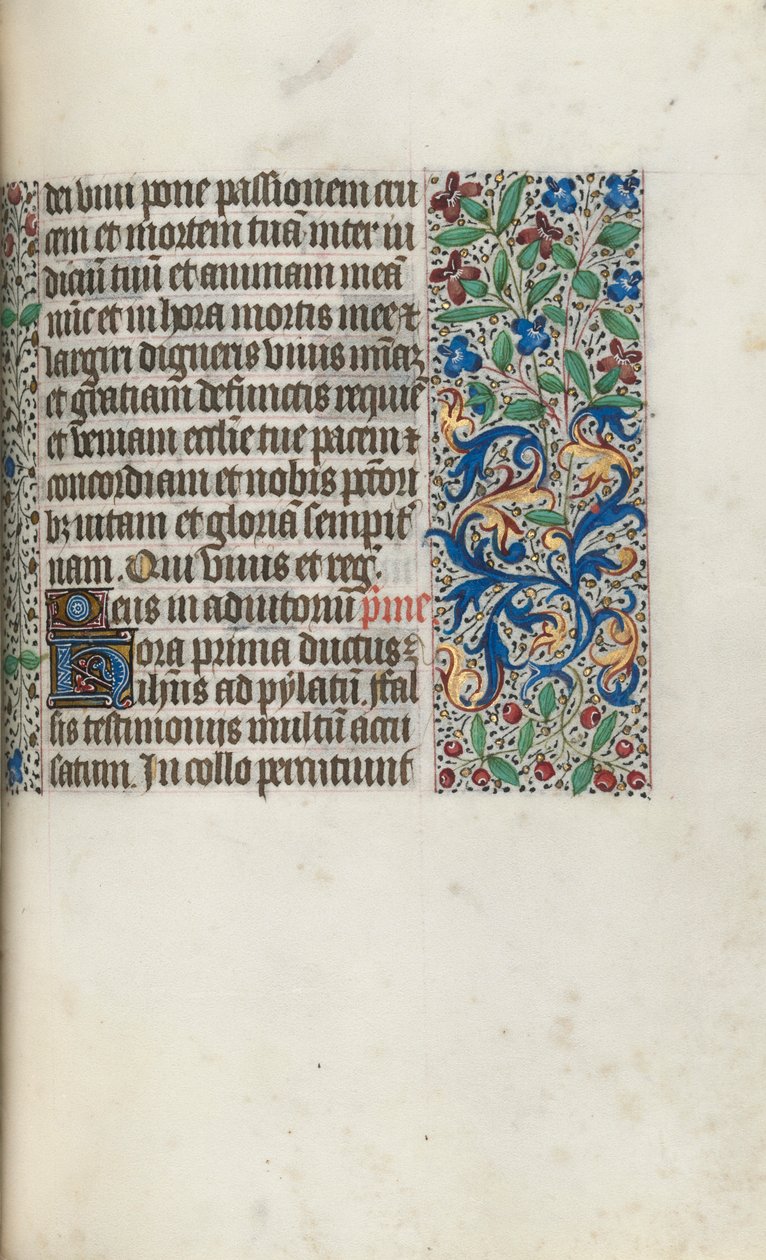 dei viui pone passionem cru
cem et mortem tuā inter iu
diciū tuū et animam meā
nūc et in hora mortis mee ⁊
largiri digneris viuis mīaꝫ
et gratiam defunctis requiē
et veniam ecclie tue pacem ⁊
concordiam et nobis pctōri
bꝫ uitam et gloriā sempit᷑
nam. Qui viuis et reg᷑.
Deus in adiutoriū prime.
Hora prima ductus ē
ihūs ad pylatū. Ffal
sis testimoniis multū accu
satum. In collo percutiunt